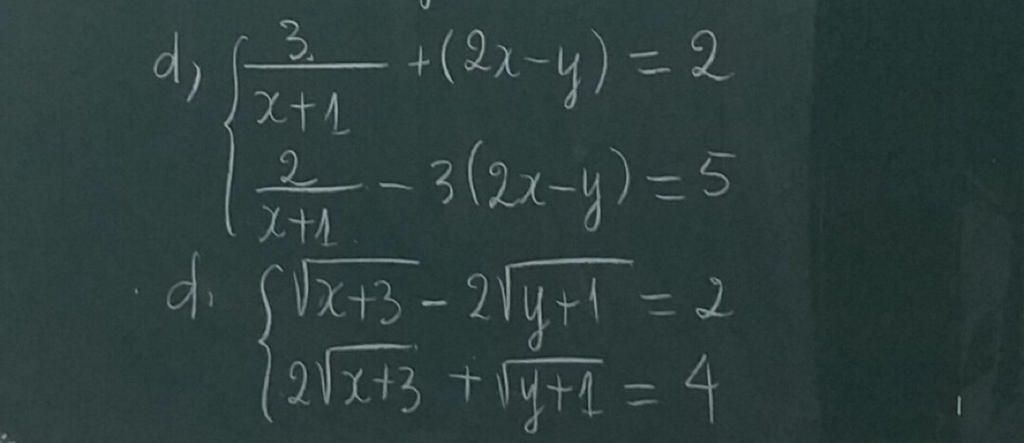 d, { 3/(x+1) + (2x-y) = 2
2/(x+1) - 3(2x-y) = 5
d. { √(x+3) - 2√(y+1) = 2
2√(x+3) + √(y+1) = 4